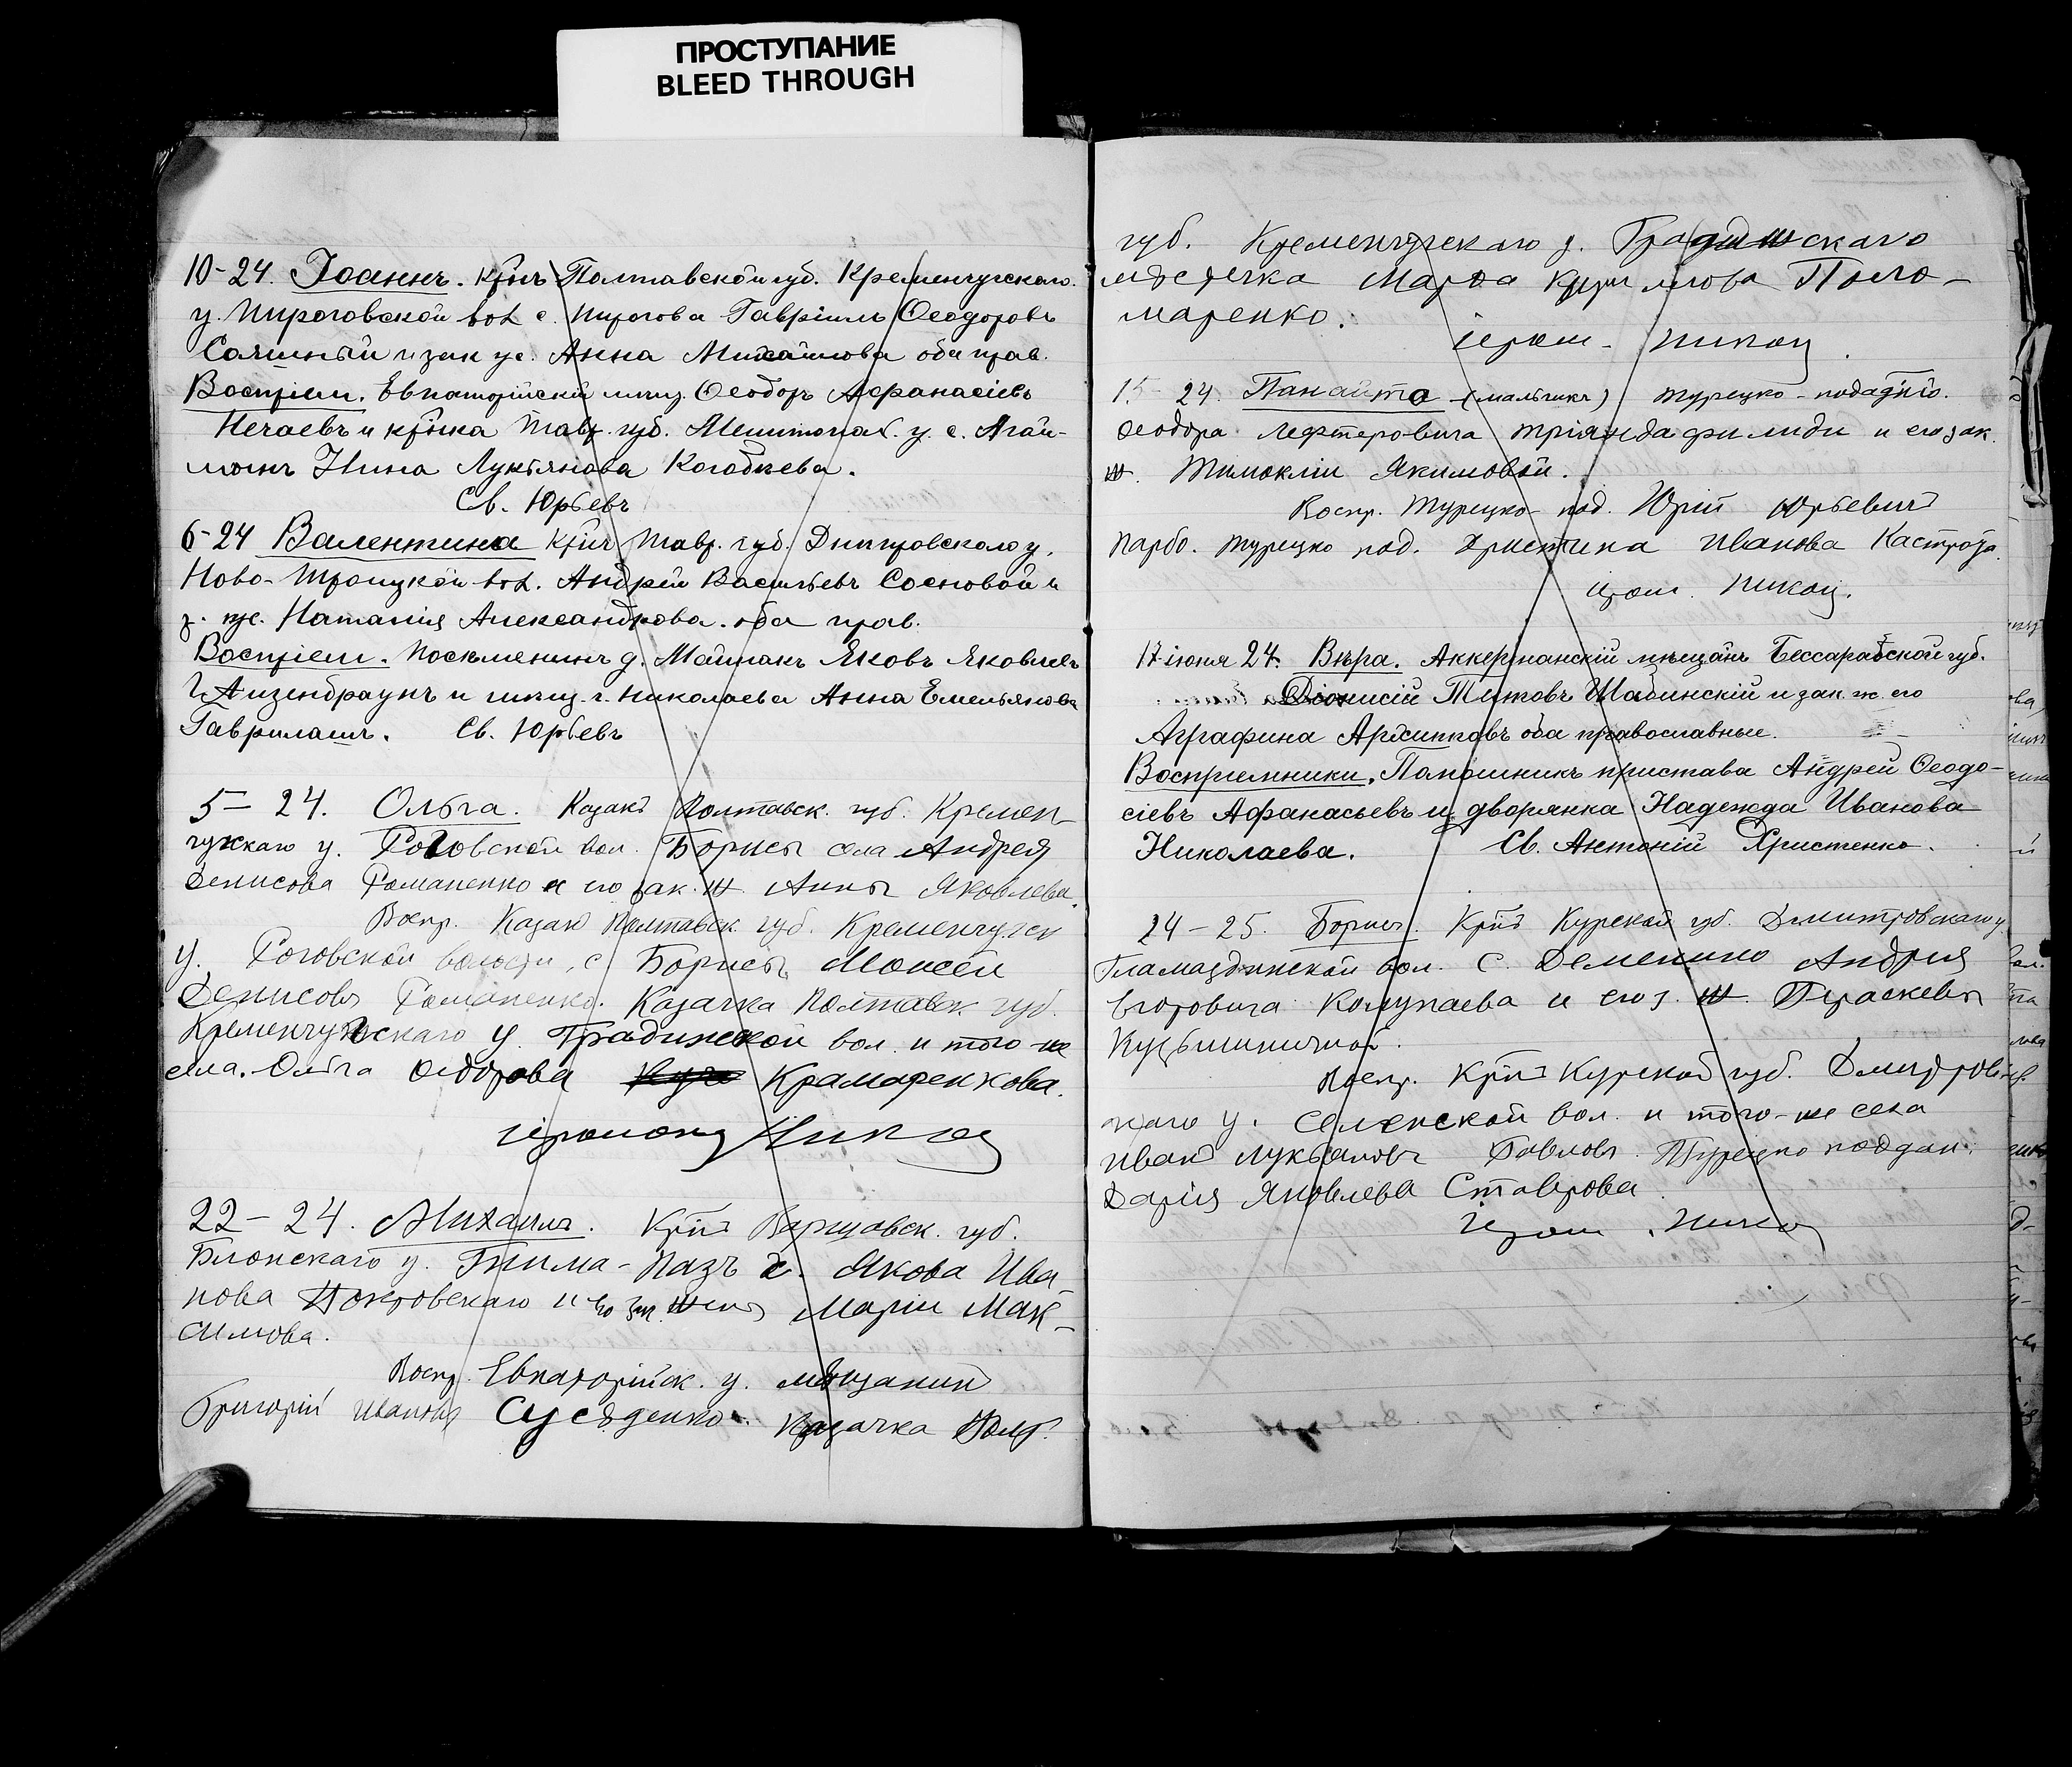 ПРОСТУПАНИЕ
BLEED THROUGH
10-24. Іоаннъ. кр-нъ Полтавской губ. Кременчугскаго
у. Пироговской вол. с. Пирогова Гавріилъ Ѳеодоровъ
и зак. же. Анна Михайлова оба прав.
Воспріем. Евпаторійскій мищ. Ѳеодоръ Аѳанасіевъ
Нечаевъ и кр-нка Тавр. губ. Мелитопол. у. с. Агай-
манъ Нина Лукьянова
Св. Юрьевъ
6-24 Валентина кр-нъ Тавр. губ. Днипровского у.
Ново-Троицкой вол. Андрей Васильевъ Сосновой и
з. же. Наталия Александрова. оба прав.
Воспріем. Поселменинъ д. Майнакъ Яковъ Яковлевъ
Айзенбраунъ и мищ. г. Николаева Анна Емельянова
Гаврилашъ. Св. Юрьевъ
5-24. Ольга. Казакъ Полтавск. губ. Кремен-
чужкаго у. Роговской вол. Борисы села Андрея
Денисова Романенко и его зак. ж. Анны Яковлева.
Воспр. Казакъ Полтавск. губ. Кременчугск
у. Роговской волости, с. Борисы, Моисей
Денисовъ Романенко. Казачка Полтавск. губ.
Кременчугскаго у. Градижской вол. и того-же
села. Ольга Ѳедорова Крамаренкова.
іеромонах Никон
22-24. Михаилъ. Кр-нъ Варшавск. губ.
Блонскаго у. Гмима-Пазъ д. Якова Ива-
нова Покровскаго и его зак. жены Маріи Мак-
симова.
Воспр. Евпаторійск. у. мѣщанинъ
Григорій Ивановъ Сусѣденко. Казачка Полт.
губ. Кременчугскаго у. Градижскаго
мѣстечка Марѳа Кириллова Поно-
маренко.
іером. Никон
15-24. Панайто (мальчикъ) турецко-подадн̅го.
Ѳеодора Лефтеровича Тріяндафилиди и его зак.
ж. Тимокліи Якимовой.
Воспр. Турецко-под. Юрій Юрьевичъ
Парбо. Турецко под. Христина Иванова Кастроза.
іером. Никон.
17 іюня 24. Вѣра. Аккерманскій мѣщанъ Бессарабской губ.
Діонисій Титовъ Шабинскій и зак. ж. его
Аграфина Архиповъ оба православные.
Воспріемники. Памошникъ пристава Андрей Ѳеодо-
сіевъ Афанасьевъ и дворянка Надежда Иванова
Николаева. Св. Антоній Христенко.
24-25. Борисъ. Кр-нъ Курской губ. Дмитровскаго у.
Гламаздинской вол. с. Деменино Андрея
Егоровича Колупаева и его з. ж. Параскевы
Кузьминичной.
Воспр. Кр-нъ Курской губ. Дмитров-
скаго у. Селенской вол. и того-же села
Иванъ Лукьяновъ Павловъ. Турецко поддан.
Дарія Яковлева Ставрова.
іером. Никон